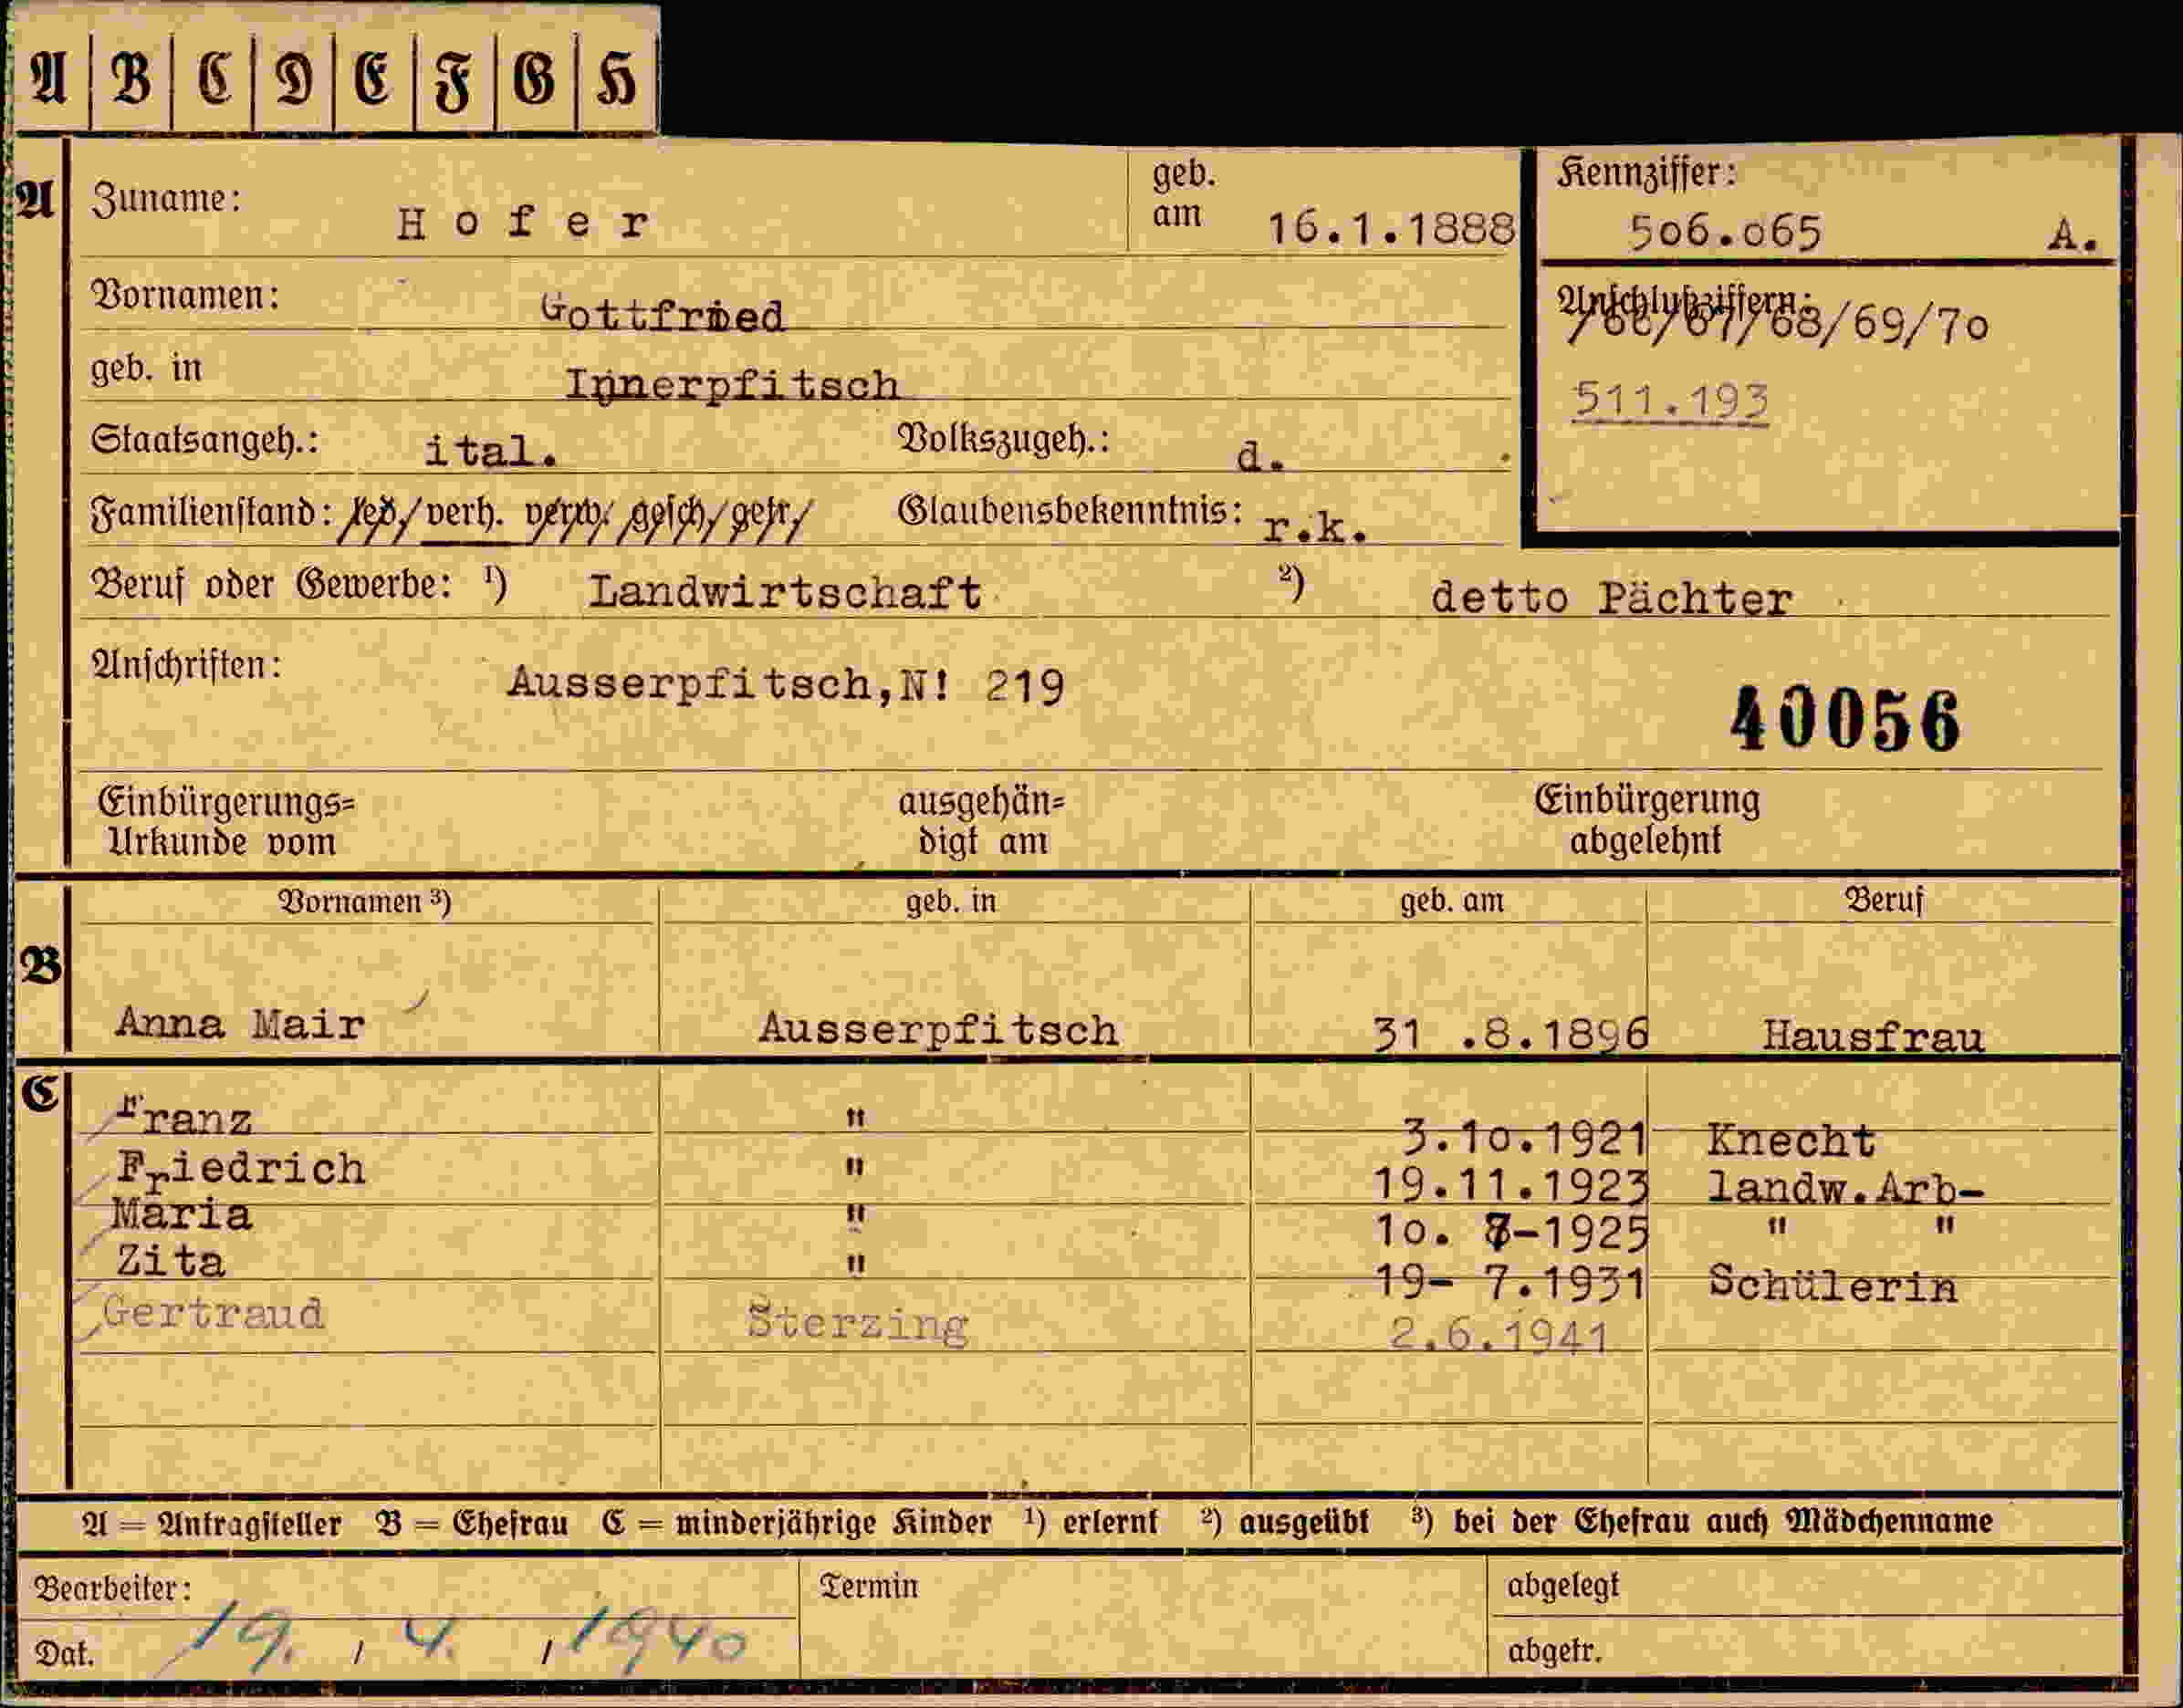 A B C D E F G H
A Zuname: Hofer geb. am 16.1.1888 Kennziffer: 506.065 A.
Vornamen: Gottfried Anschlußziffern: /66/67/68/69/70
geb. in Innerpfitsch 511.193
Staatsangeh.: ital. Volkszugeh.: d.
Familienstand: led. verh. verw. gesch. getr. Glaubensbekenntnis: r.k.
Beruf oder Gewerbe: ¹) Landwirtschaft ²) detto Pächter
Anschriften: Ausserpfitsch,N! 219
40056
Einbürgerungs= ausgehän= Einbürgerung
Urkunde vom digt am abgelehnt
Vornamen ³) geb. in geb. am Beruf
B Anna Mair Ausserpfitsch 31 .8.1896 Hausfrau
C Franz " 3.10.1921 Knecht
Friedrich " 19.11.1923 landw.Arb-
Maria " 10. -1925 " "
Zita " 19- 7.1931 Schülerin
Gertraud Sterzing 2.6.1941
A = Antragsteller B = Ehefrau C = minderjährige Kinder ¹) erlernt ²) ausgeübt ³) bei der Ehefrau auch Mädchenname
Bearbeiter: Termin abgelegt
Dat. 19. / 4. / 1940 abgetr.